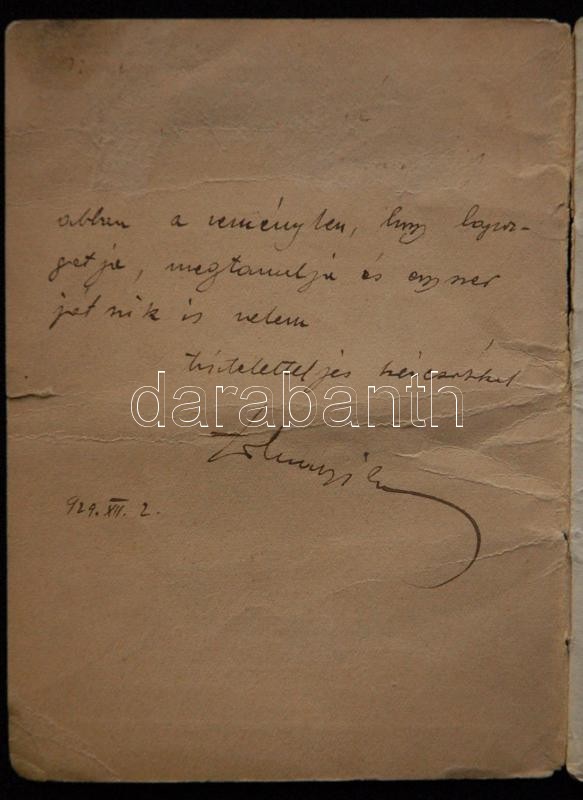 abban a reményben, hogy lapoz-
gatja, megtanulja és egyszer
játszik is velem
tiszteletteljes
darabanth
929. XII. 2.